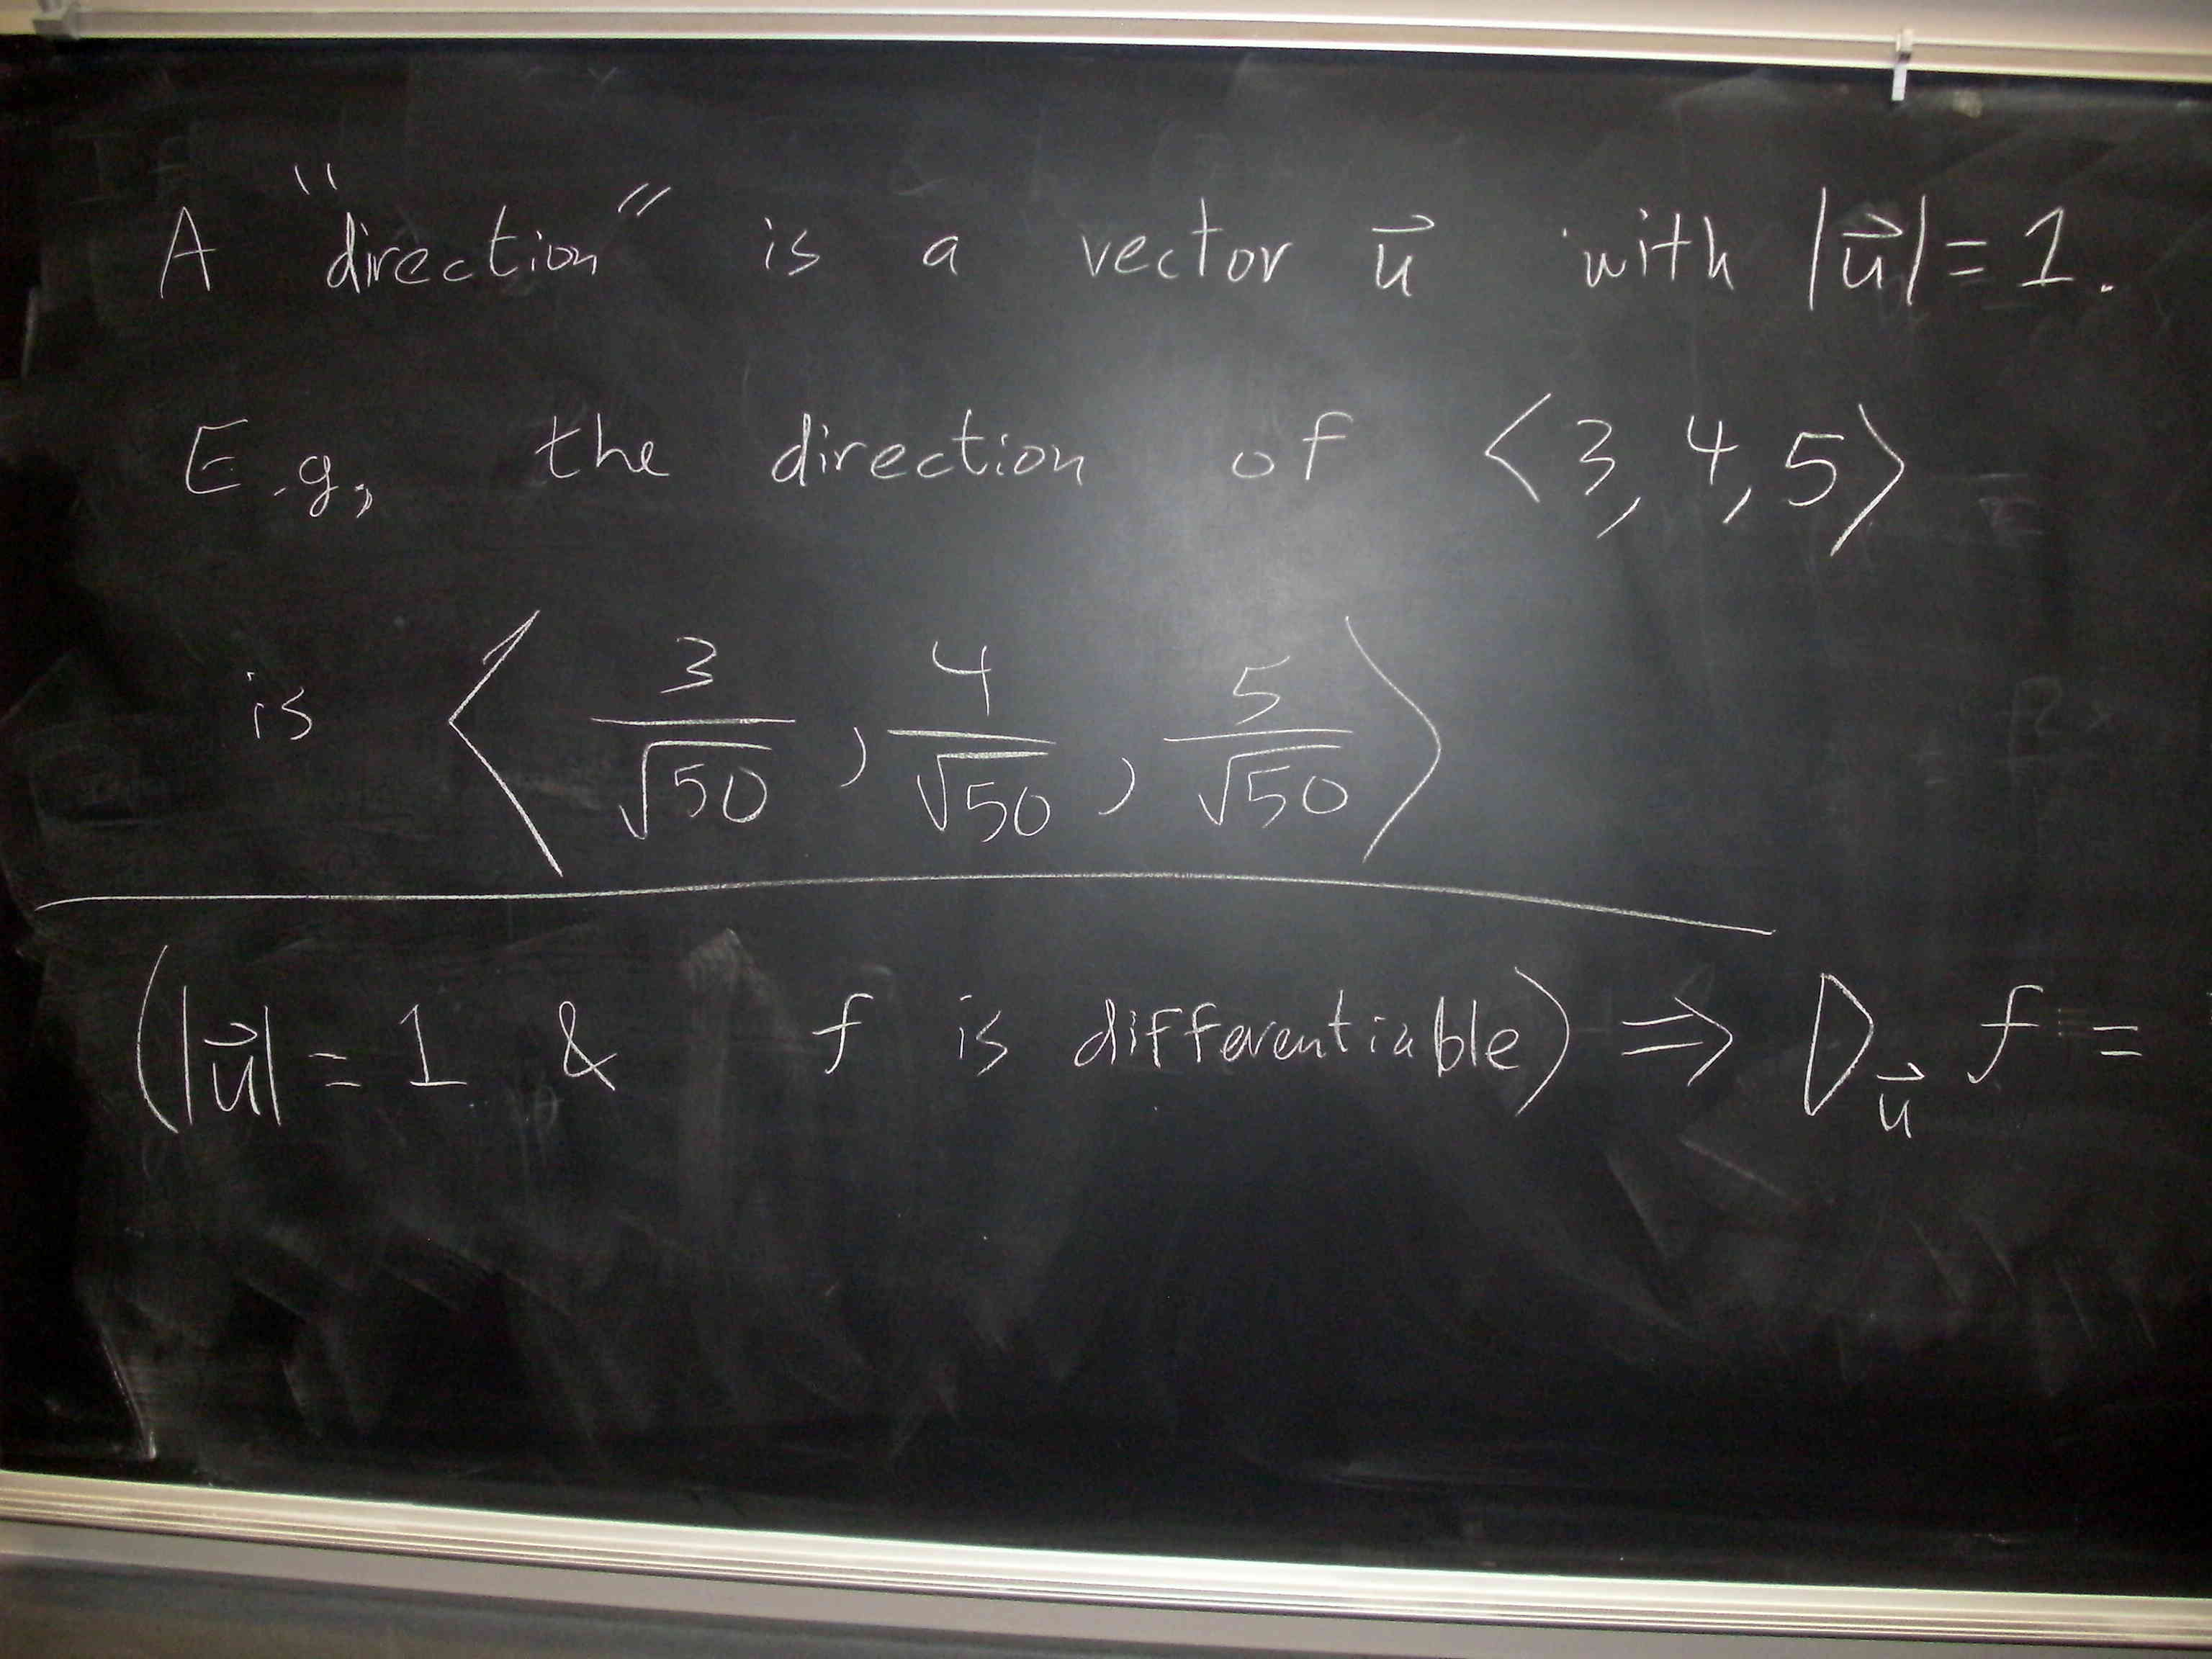 A "direction" is a vector u⃗ with |u⃗| = 1.
E.g, the direction of ⟨3, 4, 5⟩
is ⟨3/√50, 4/√50, 5/√50⟩
(|u⃗| = 1 & f is differentiable) ⇒ D_u⃗ f =